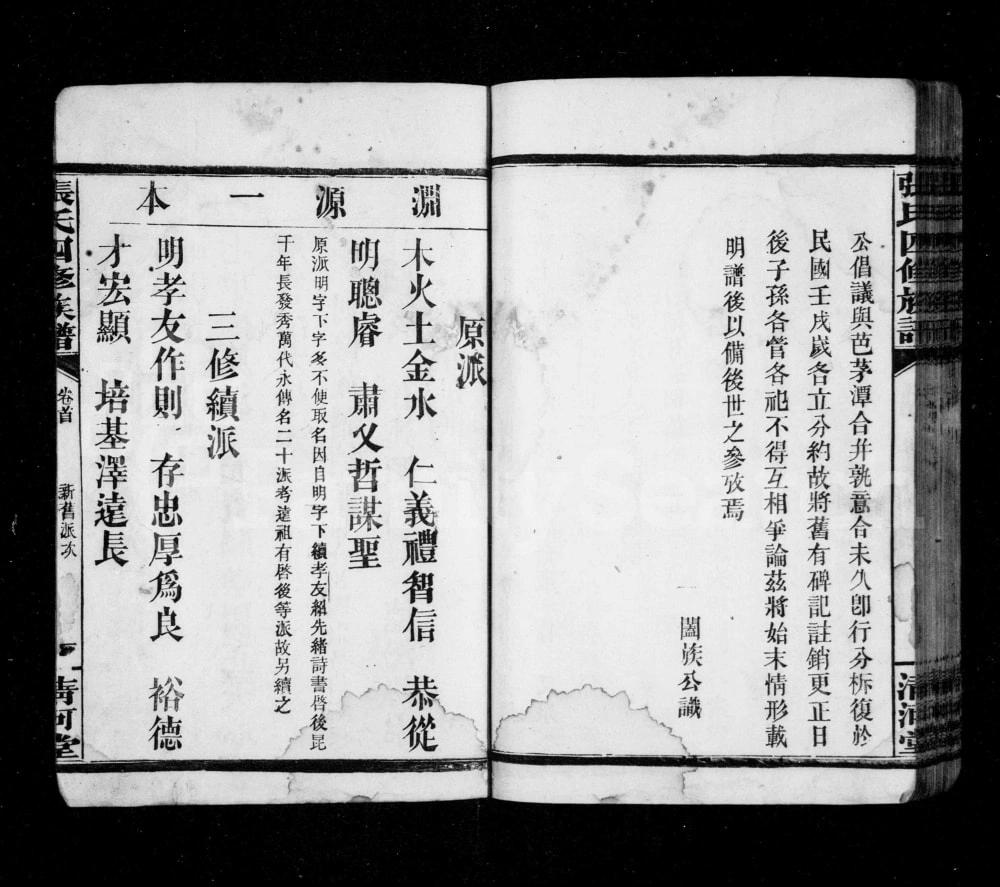 張氏四修族譜
清河堂
公倡議與芭茅潭合并孰意合未久卽行分柝復於
民國壬戌歲各立分約故將舊有碑記註銷更正日
後子孫各管各祀不得互相爭論茲將始末情形載
明譜後以備後世之參攷焉
闔族公識
淵源一本
原派
木火土金水 仁義禮智信 恭從
明聰睿 肅乂哲謀聖
原派明字下字多不便取名因自明字下續孝友紹先緒詩書啓後昆
千年長發秀萬代永傳名二十派考遠祖有啓後等派故另續之
三修續派
明孝友作則 存忠厚爲良 裕德
才宏顯 培基澤遠長
張氏四修族譜
卷首
新舊派次
清河堂